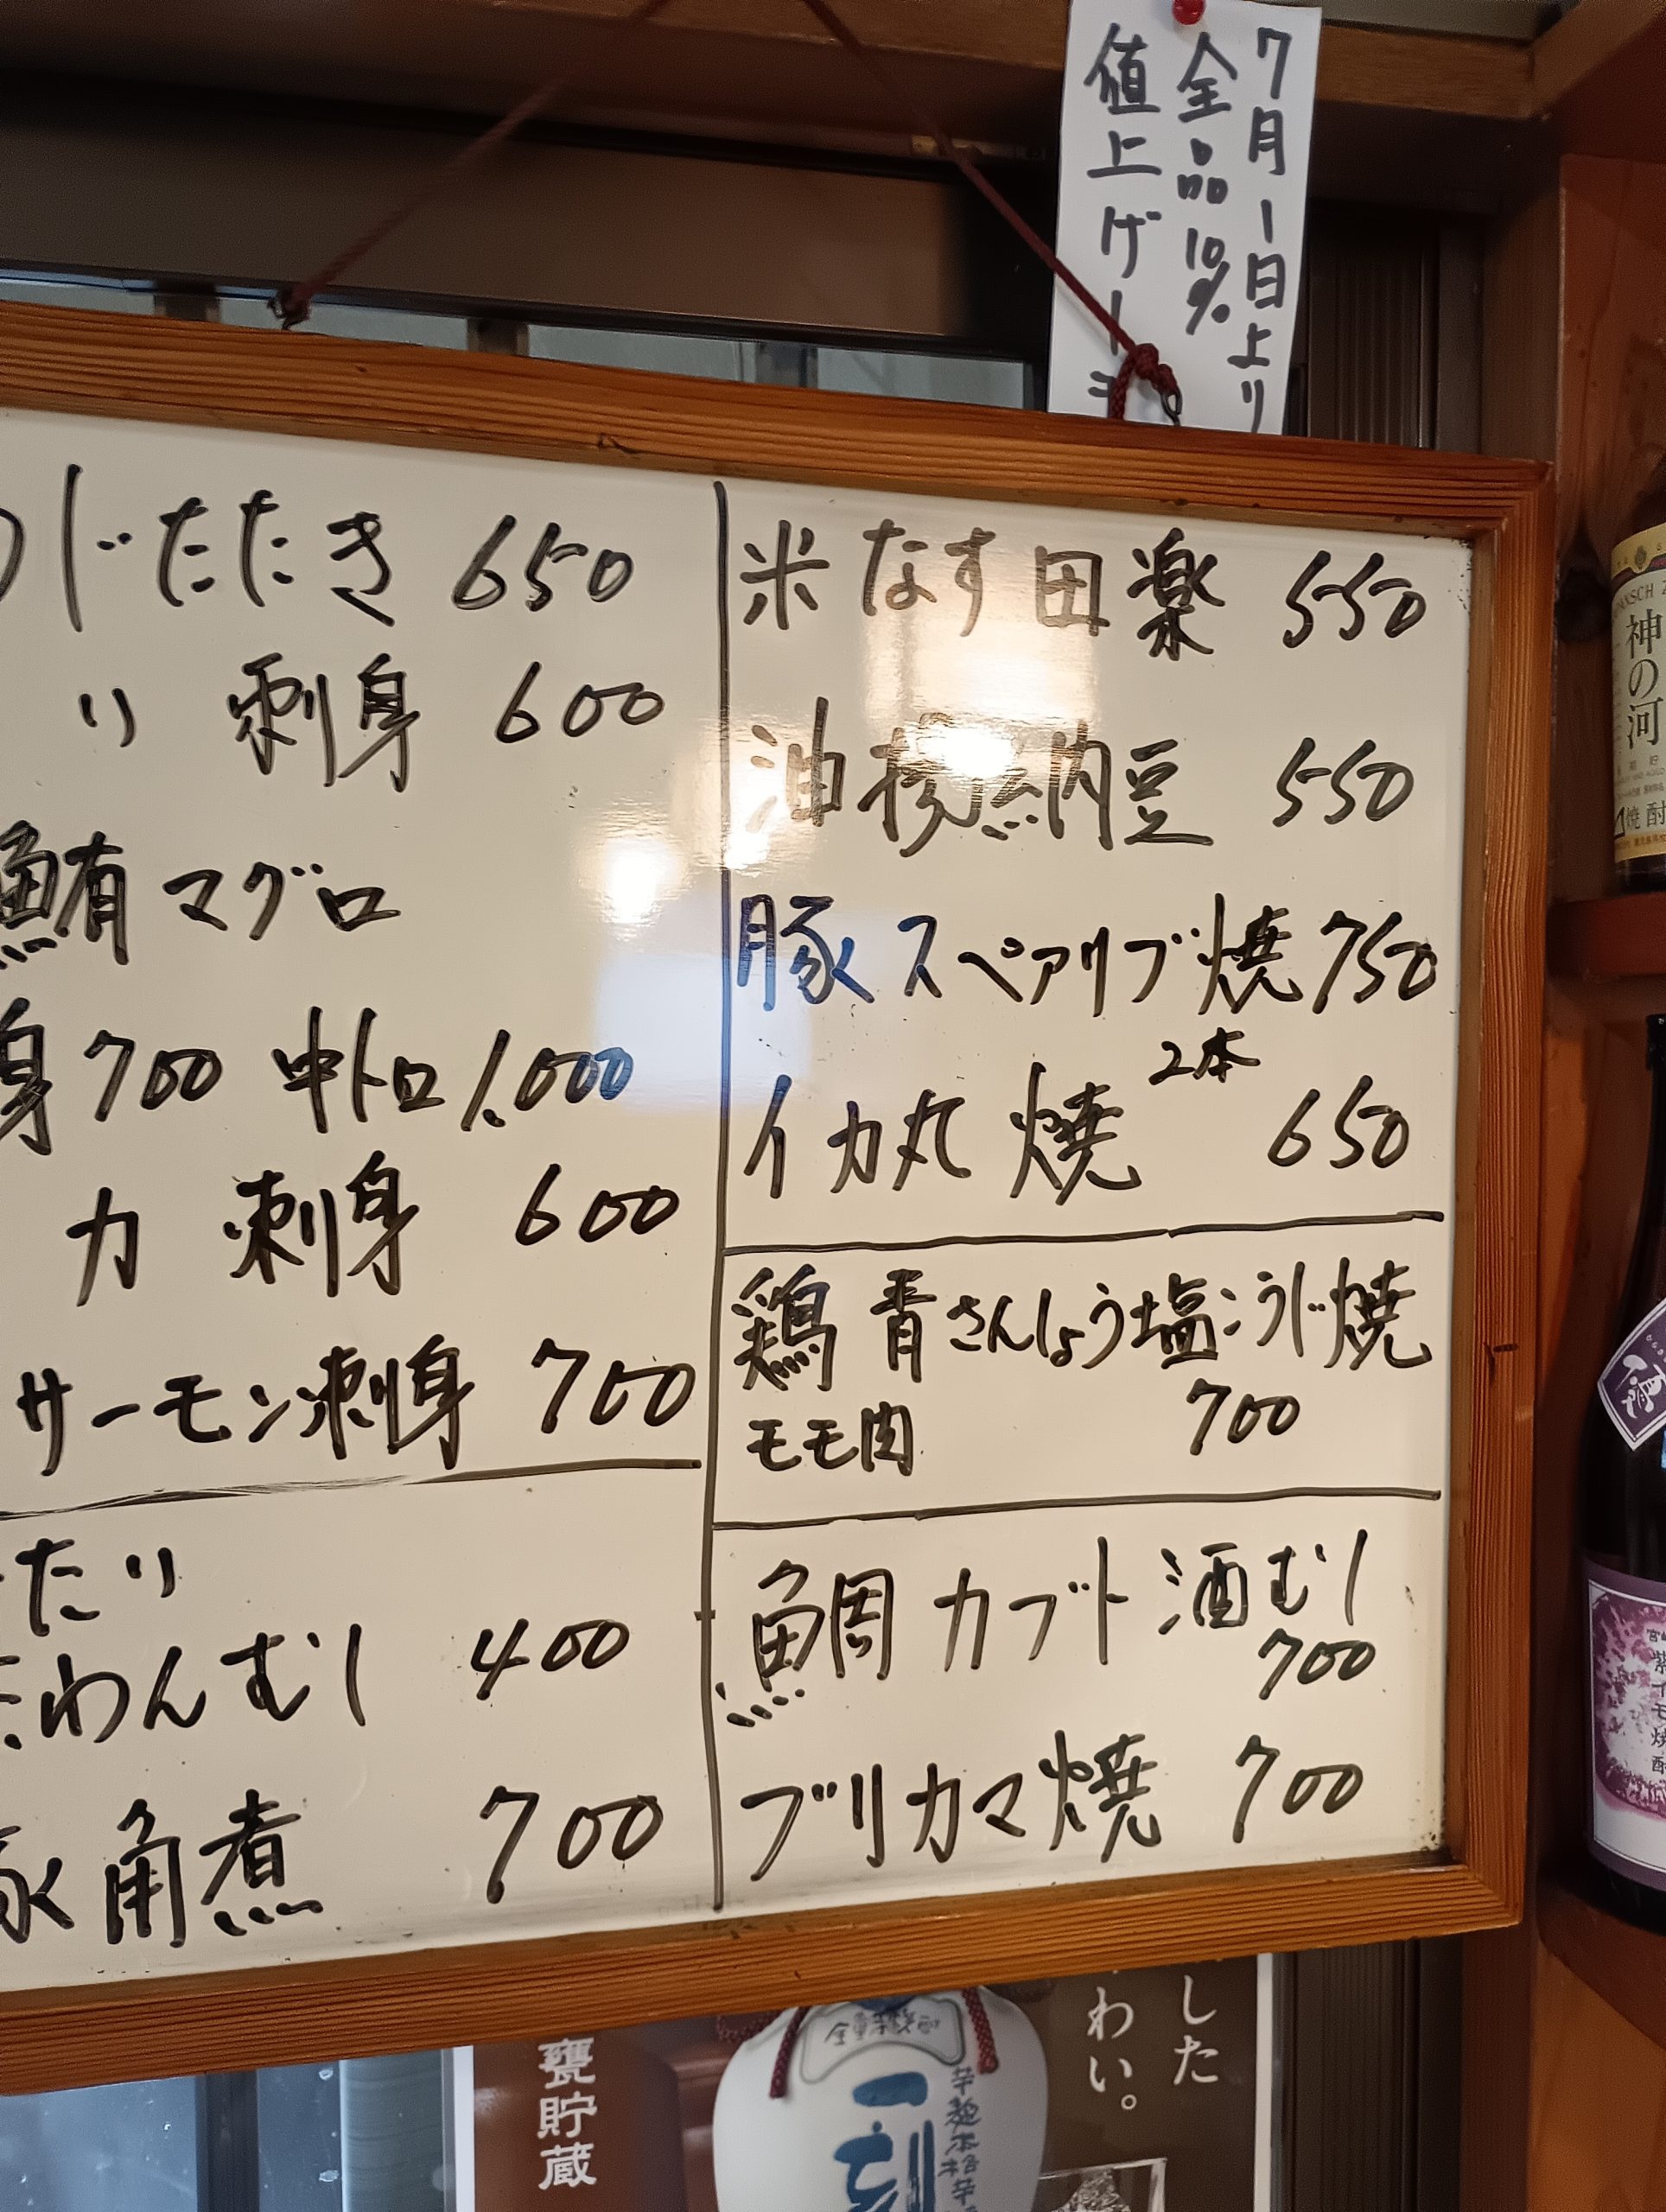 7月1日より
全品10%
値上げ
じたたき 650
〃 刺身 600
鮪マグロ
身700 中トロ1.000
カ 刺身 600
サーモン刺身 700
たり
わんむし 400
豚角煮 700
米なす田楽 550
油揚納豆 550
豚スペアリブ焼750
2本
イカ丸焼 650
鶏 青さんしょう塩こうじ焼
モモ肉 700
鯛カブト酒むし
700
ブリカマ焼 700
神の河
焼酎
甕貯蔵
した
わい。
一刻